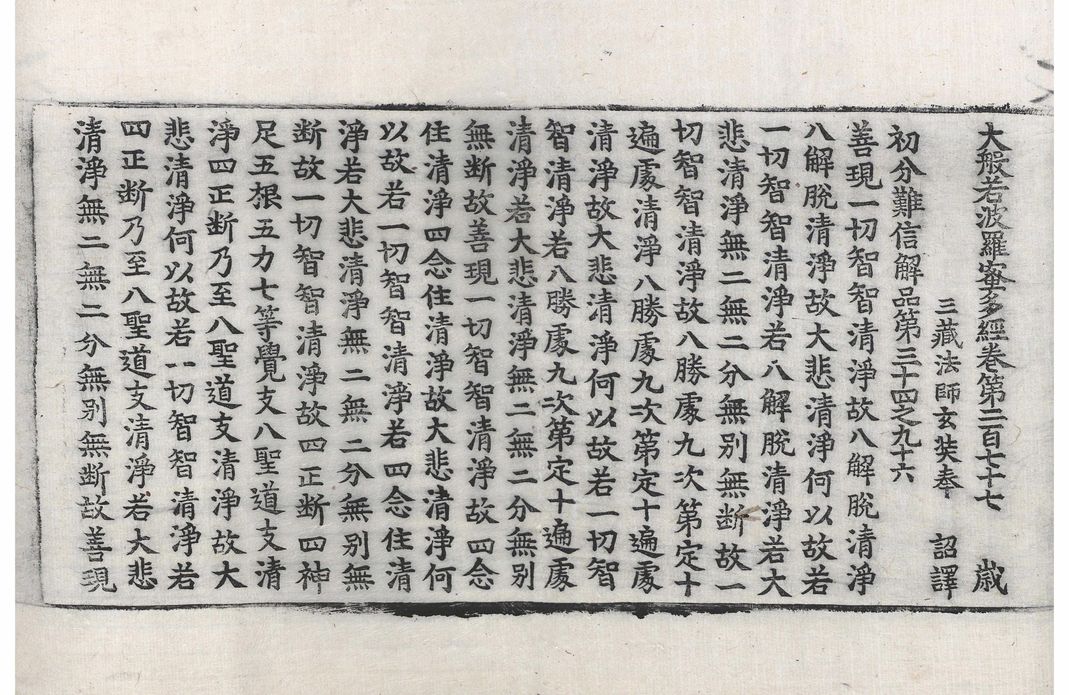 大般若波羅蜜多經卷第二百七十七 歲
三藏法師玄奘奉 詔譯
初分難信解品第三十四之九十六
善現一切智智清淨故八解脫清淨
八解脫清淨故大悲清淨何以故若
一切智智清淨若八解脫清淨若大
悲清淨無二無二分無別無断故一
切智智清淨故八勝處九次第定十
遍處清淨八勝處九次第定十遍處
清淨故大悲清淨何以故若一切智
智清淨若八勝處九次第定十遍處
清淨若大悲清淨無二無二分無別
無断故善現一切智智清淨故四念
住清淨四念住清淨故大悲清淨何
以故若一切智智清淨若四念住清
淨若大悲清淨無二無二分無別無
断故一切智智清淨故四正断四神
足五根五力七等覺支八聖道支清
淨四正断乃至八聖道支清淨故大
悲清淨何以故若一切智智清淨若
四正断乃至八聖道支清淨若大悲
清淨無二無二分無別無断故善現